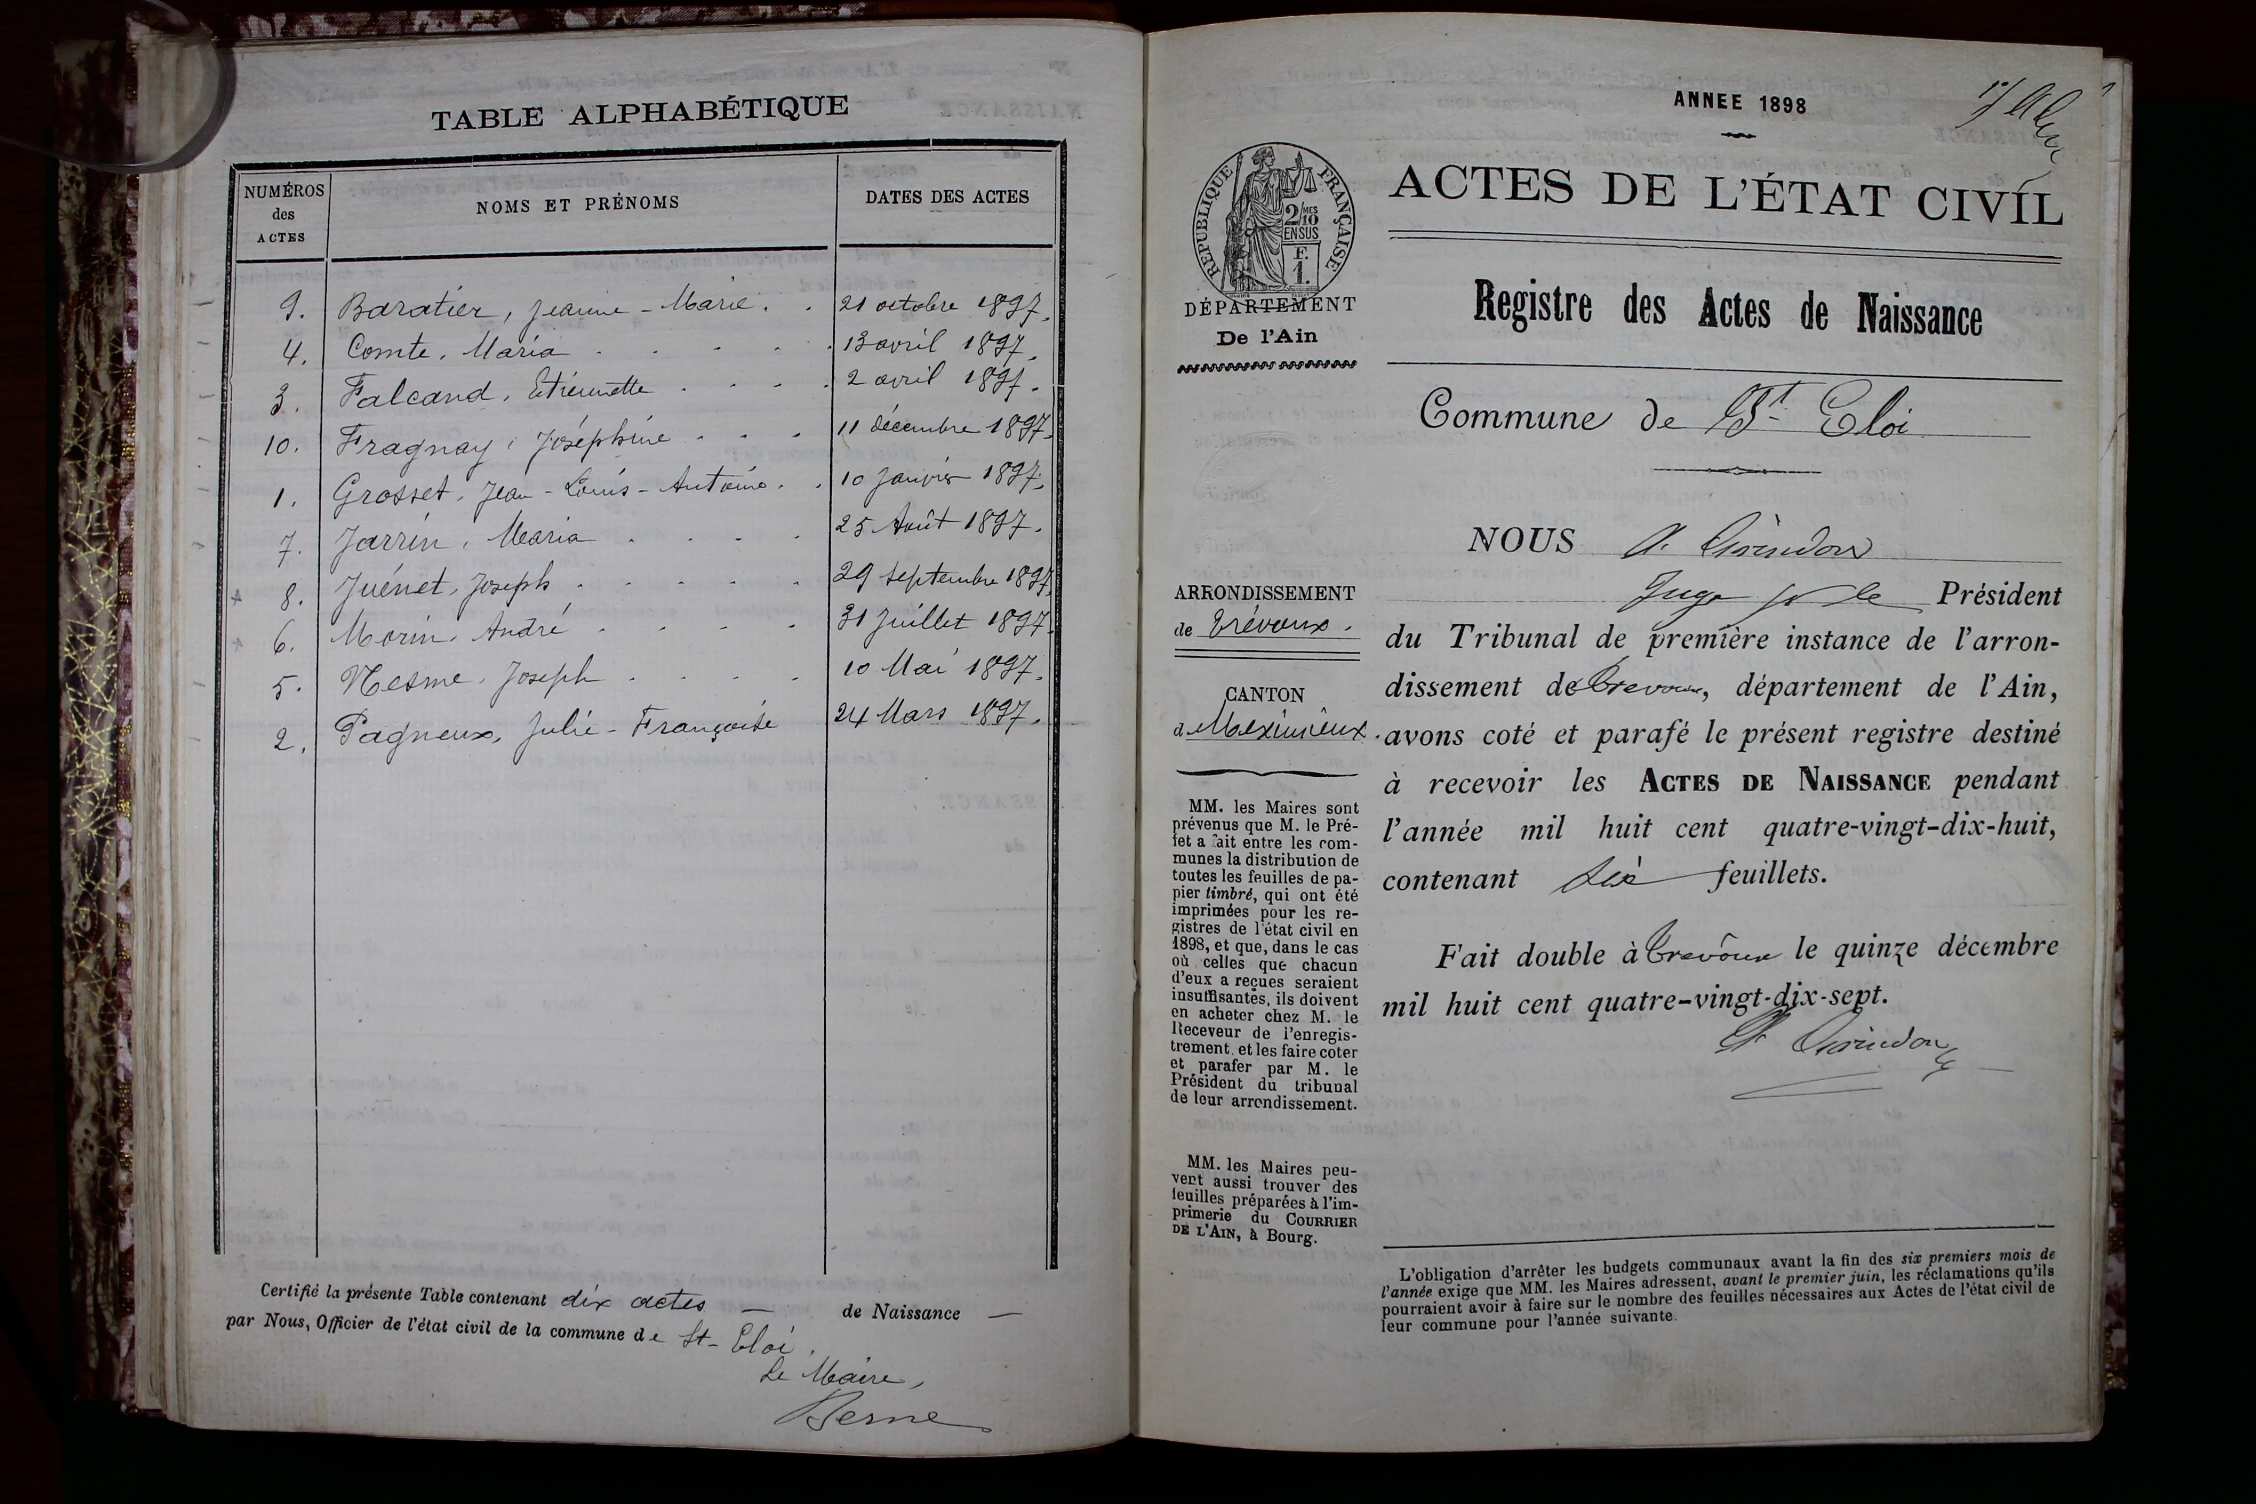 TABLE ALPHABÉTIQUE
NUMÉROS des ACTES
NOMS ET PRÉNOMS
DATES DES ACTES
9. Baratier, Jeanne-Marie. . 21 octobre 1897.
4. Comte, Maria . . . . . 13 avril 1897.
3. Falcand, Etiennette . . . . 2 avril 1897.
10. Fragnay, Joséphine . . . 11 décembre 1897.
1. Grosset, Jean-Louis-Antoine. . 10 Janvier 1897.
7. Jarrin, Maria . . . . 25 Août 1897.
8. Juénet, Joseph . . . . . 29 septembre 1897.
6. Morin, André . . . . 31 Juillet 1897.
5. Mesme, Joseph . . . . 10 Mai 1897.
2. Pagneux, Julie-Françoise 24 Mars 1897.
Certifié la présente Table contenant dix actes — de Naissance —
par Nous, Officier de l'état civil de la commune de St-Eloi.
Le Maire,
Berne
ANNEE 1898
RÉPUBLIQUE FRANÇAISE
2/10 MES
EN SUS
F.
1.
DÉPARTEMENT
De l'Ain
ACTES DE L'ÉTAT CIVIL
Registre des Actes de Naissance
Commune de St Eloi
ARRONDISSEMENT
de Trévoux.
CANTON
d Meximieux.
MM. les Maires sont
prévenus que M. le Pré-
fet a fait entre les com-
munes la distribution de
toutes les feuilles de pa-
pier timbré, qui ont été
imprimées pour les re-
gistres de l'état civil en
1898, et que, dans le cas
où celles que chacun
d'eux a reçues seraient
insuffisantes, ils doivent
en acheter chez M. le
Receveur de l'enregis-
trement et les faire coter
et parafer par M. le
Président du tribunal
de leur arrondissement.
MM. les Maires peu-
vent aussi trouver des
feuilles préparées à l'im-
primerie du COURRIER
DE L'AIN, à Bourg.
NOUS
Juge pr le Président
du Tribunal de première instance de l'arron-
dissement de Trevoux, département de l'Ain,
avons coté et parafé le présent registre destiné
à recevoir les ACTES DE NAISSANCE pendant
l'année mil huit cent quatre-vingt-dix-huit,
contenant six feuillets.
Fait double à Trevoux le quinze décembre
mil huit cent quatre-vingt-dix-sept.
L'obligation d'arrêter les budgets communaux avant la fin des six premiers mois de
l'année exige que MM. les Maires adressent, avant le premier juin, les réclamations qu'ils
pourraient avoir à faire sur le nombre des feuilles nécessaires aux Actes de l'état civil de
leur commune pour l'année suivante.